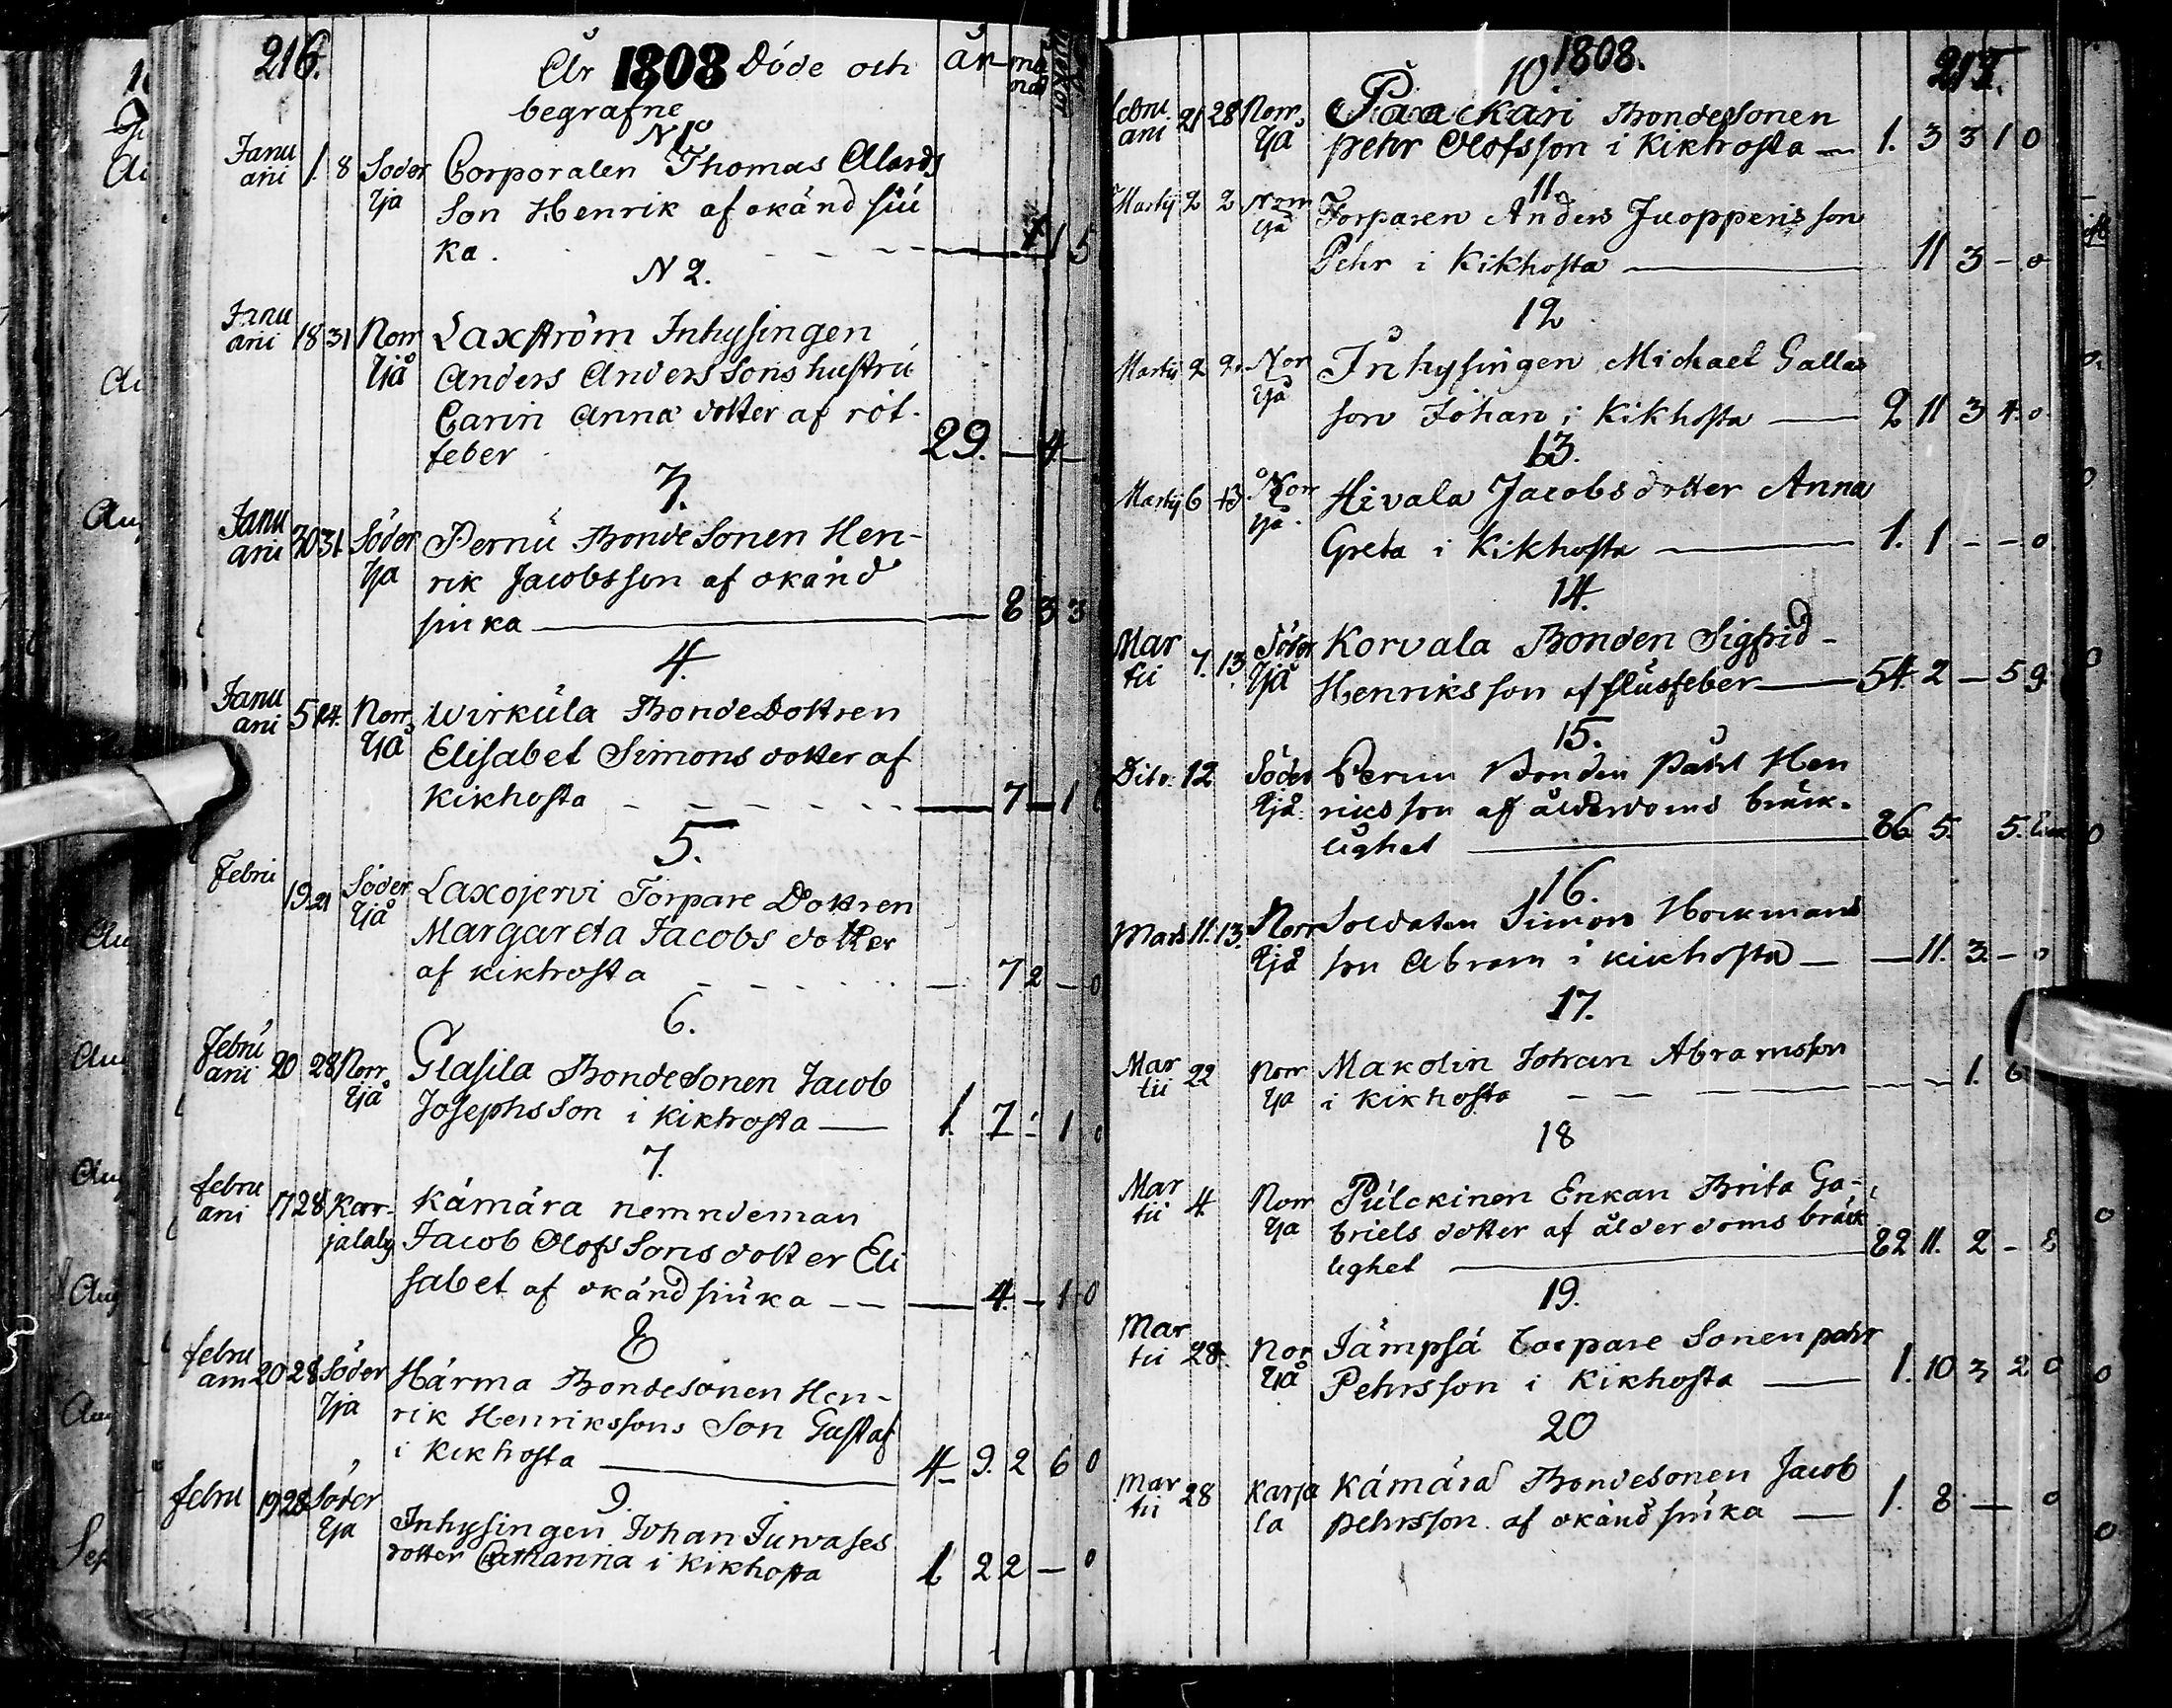 216.
År 1808 Döde och år må nad wekor
begrafne
N 1o
Janu ari 1. 8 Söder Corporalen Thomas Alards
ljå Son Henrik af okänd siü
ka. — 1 1 5
N 2.
Janu ari 18 31 Norr Laxström Inhysingen
ljå Anders Anderssons hustrü
Carin Anna dotter af röt-
feber 29. — 4 —
3.
Janu ari 30 31 Söder Pernü Bonde Sonen Hen-
ljå rik Jacobsson af okänd
siuka — 8 3 3
4.
Janu ari 5 14. Norr Wirküla Bonde Dottren
ljå Elisabet Simons dotter af
Kikhosta — 7 — 1
5.
Febru 19 21 Söder Laxojervi Torpare Dottren
ljå Margareta Jacobs dotter
af kikhosta — 7 2 — 0
6.
Febru ari 20 28 Norr Glasila Bonde Sonen Jacob
ljå Josephsson i kikhosta — 1. 7 - 1 0
7.
febru ari 17 28 Karjalaby Kämära nemndeman
Jacob Olofs Sons dotter Eli
sabet af okänd siüka — 4. — 1 0
8
febru ari 20 28 Söder Härma Bondesonen Hen-
ljå rik Henrikssons Son Gustaf
i kikhosta — 4 9. 2 6 0
9.
febru 19 28 Söder Inhysingen Johan Juwases
ljå dotter Catharina i kikhosta 1 2 2 — 0
1808. 217.
10
febru ari 21 28 Norr Paackari Bondesonen
ljå Pehr Olofsson i Kikhosta — 1. 3 3 1 0
11
Martij 2 2 Norr Torparen Anders Juoppenis son
ljå Pehr i Kikhosta — 11 3 — 0
12
Martij 2 2. Nor Inhysingen Michael Gallas
ljå son Johan i Kikhosta — 2 11 3 4. 0
13.
Martij 6 13 Norr Hivala Jacobs dotter Anna
ljå Greta i Kikhosta — 1. 1 — — 0
14.
Mar tii 7. 13. Söder Korvala Bonden Sigfrid
ljå Henriksson af flüsfeber — 54. 2 — 5 9.
15.
Dito. 12 Söder Pernu Bonden Påhl Hen
ljå riksson af ålderdoms bräck-
lighet — 86 5. 5.
16.
Mars 11. 13. Norr Soldaten Simon Hockmans
ljå son Abram i kikhosta — — 11. 3. — 0
17.
Mar tii 22 Norr Makolin Johan Abramsson
ljå i Kikhosta — — 1. 6
18
Mar tii 4 Norr Pülckinen Enkan Brita Ga-
ljå briels dotter af ålderdoms bräck
lighet — 82 11. 2 — 8
19.
Mar tii 28. Nor Jämpsä Torpare Sonen pehr
ljå Pehrsson i Kikhosta — 1. 10 3 2 0
20
Mar tii 28 Karja Kämärä Bondesonen Jacob
la pehrsson af okänd siüka — 1. 8. — 0